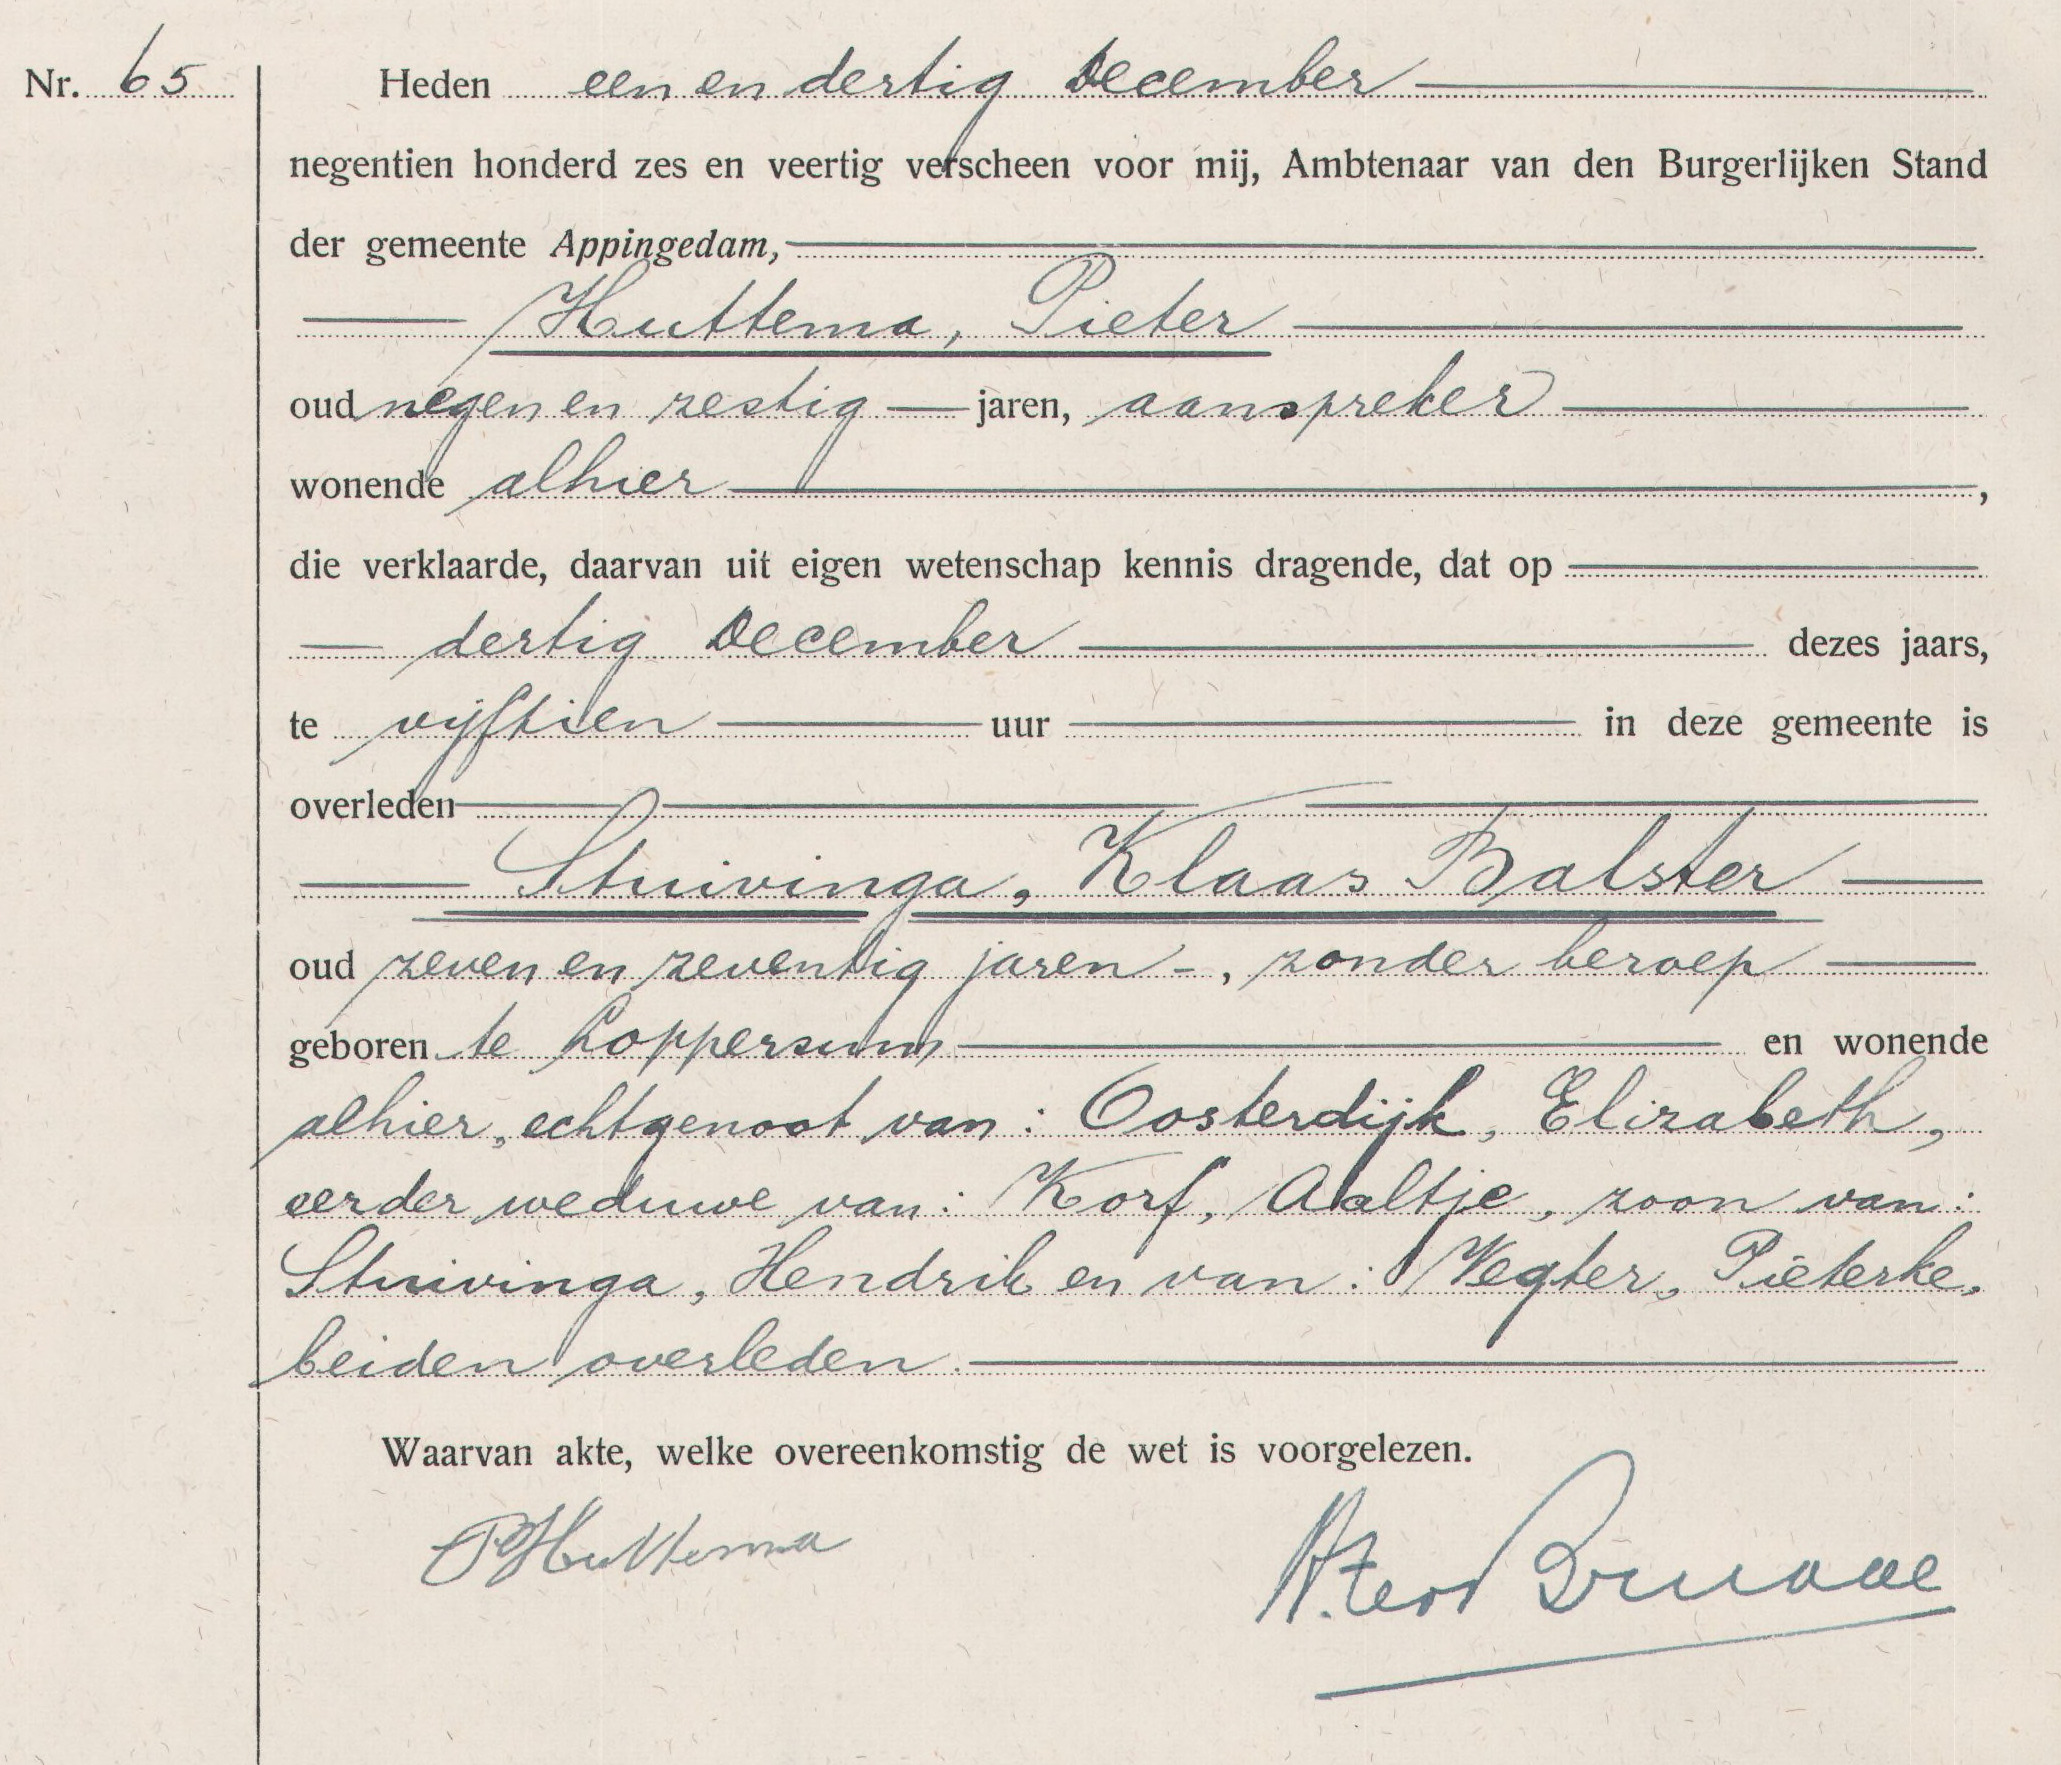 Nr. 65 Heden een en dertig December
negentien honderd zes en veertig verscheen voor mij, Ambtenaar van den Burgerlijken Stand
der gemeente Appingedam,
Huttema, Pieter
oud negen en zestig jaren, aanspreker
wonende alhier,
die verklaarde, daarvan uit eigen wetenschap kennis dragende, dat op
dertig December dezes jaars,
te vijftien uur in deze gemeente is
overleden
Stuivinga, Klaas Balster
oud zeven en zeventig jaren -, zonder beroep
geboren te Loppersum en wonende
alhier, echtgenoot van: Oosterdijk, Elizabeth,
eerder weduwe van: Korf, Aaltje, zoon van:
Stuivinga, Hendrik en van: Vegter, Pieterke,
beiden overleden.
Waarvan akte, welke overeenkomstig de wet is voorgelezen.
P Huttema